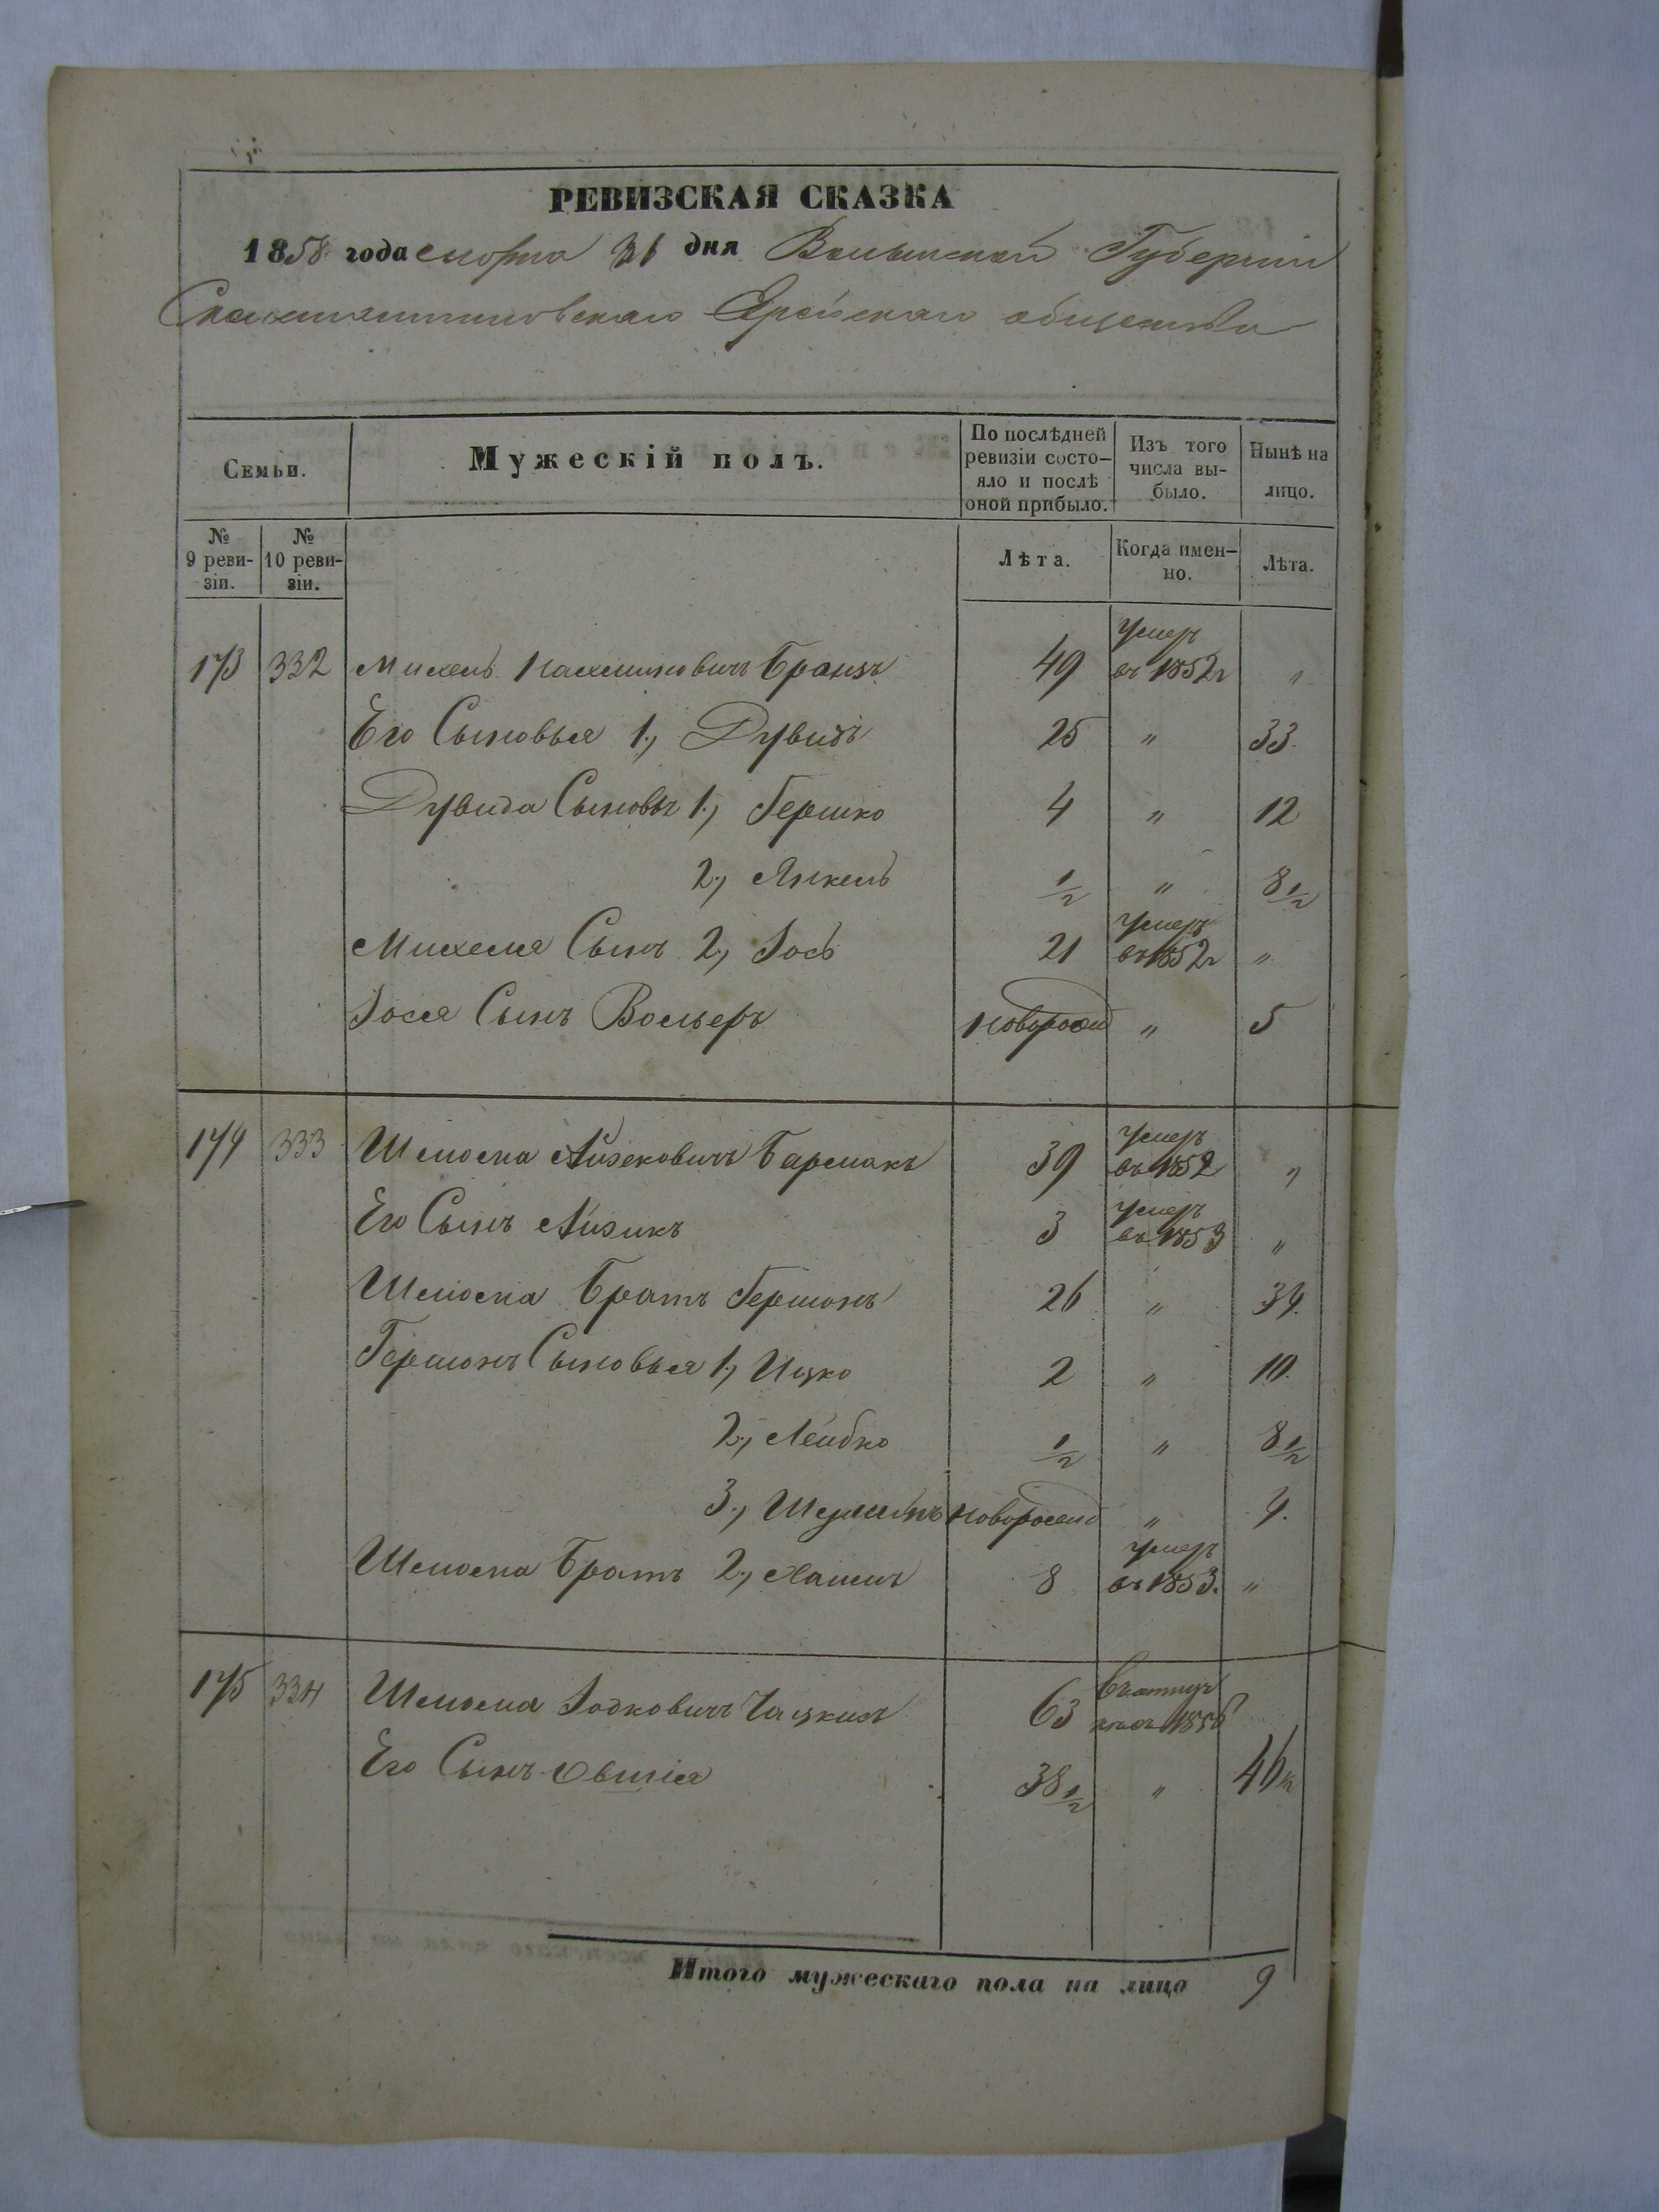 РЕВИЗСКАЯ СКАЗКА
1858 года Марта 31 дня Волынской Губернии
Еврейскаго общества
Семьи. Мужескій полъ. По послѣдней ревизіи состояло и послѣ оной прибыло. Изъ того числа выбыло. Нынѣ на лицо.
№ 9 ревизіи. № 10 ревизіи. Лѣта. Когда именно. Лѣта.
173 332 Михель Нахмановичъ 49 Умеръ въ 1852г "
Его Сыновья 1., Дувидъ 25 " 33.
Дувида Сыновья 1., Гершко 4 " 12
2., Янкель 1/2 " 8 1/2
Михеля Сынъ 2., Іось 21 Умеръ въ 1852г "
Іося Сынъ Вольферъ Новорожд " 5
174 333 Шліома Айзековичъ Бармакъ 39 Умеръ въ 1852 "
Его Сынъ Айзикъ 3 Умеръ въ 1853 "
Шліома Братъ Гершонъ 26 " 34.
Гершонъ Сыновья 1., Ицко 2 " 10.
2., Лейбко 1/2 " 8 1/2
3., новорожд " 4.
Шліома Братъ 2., Хаимъ 8 Умеръ въ 1853. "
175 334 Шліома Іодковичъ Чацкисъ 63 1856
Его Сынъ Овшія 38 1/2 " 46 1/2
Итого мужескаго пола на лицо 9